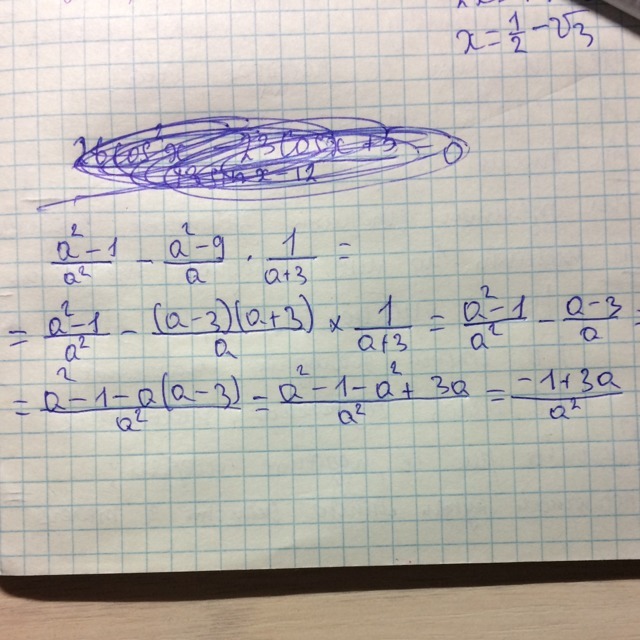 x = 1/2 - √3
(a² - 1)/a² - (a² - 9)/a · 1/(a+3) =
= (a² - 1)/a² - (a-3)(a+3)/a × 1/(a+3) = (a² - 1)/a² - (a-3)/a =
= (a² - 1 - a(a-3))/a² = (a² - 1 - a² + 3a)/a² = (-1 + 3a)/a²